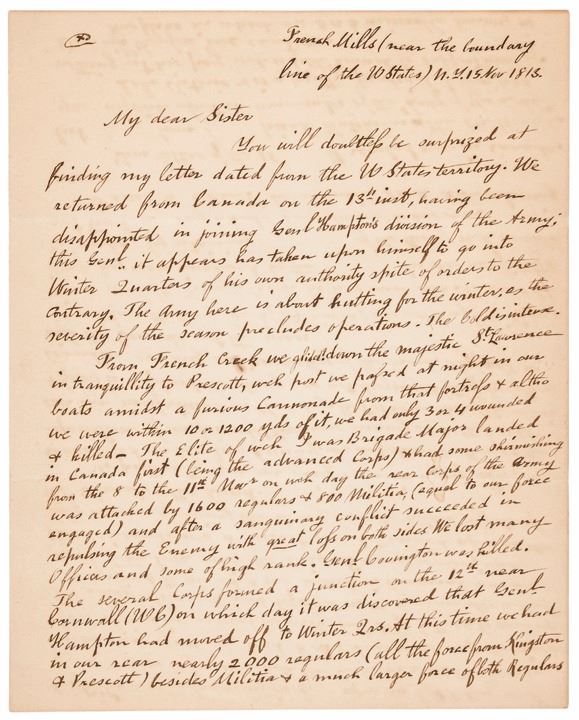 French Mills (near the boundary
line of the U States) N.Y. 15 Nov 1813.
My dear Sister
You will doubtless be surprized at
finding my letter dated from the U States territory. We
returned from Canada on the 13th inst, having been
disappointed in joining Genl Hampton's division of the Army;
this Genl, it appears has taken upon himself to go into
Winter Quarters of his own authority spite of orders to the
contrary. The Army here is about hutting for the winter, as the
severity of the season precludes operations. The Cold is intense.
From French Creek we glided down the majestic St. Lawrence
in tranquillity to Prescott, wch post we passed at night in our
boats amidst a furious Cannonade from that fortress & altho
we were within 10 or 1200 yds of it, we had only 3 or 4 wounded
& killed - The Elite of wch I was Brigade Major landed
in Canada first (being the advanced Corps) & had some skirmishing
from the 8 to the 11th Novr on wch day the rear Corps of the Army
was attacked by 1600 regulars & 800 Militia, (equal to our force
engaged) and after a sanguinary conflict succeeded in
repulsing the Enemy with great loss on both sides We lost many
Officers and some of high rank. Genl. Covington was killed.
The several Corps formed a junction on the 12th near
Cornwall (UC) on which day it was discovered that Genl.
Hampton had moved off to Winter Qrs. At this time we had
in our rear nearly 2000 regulars (all the force from Kingston
& Prescott) besides Militia & a much larger force of both Regulars